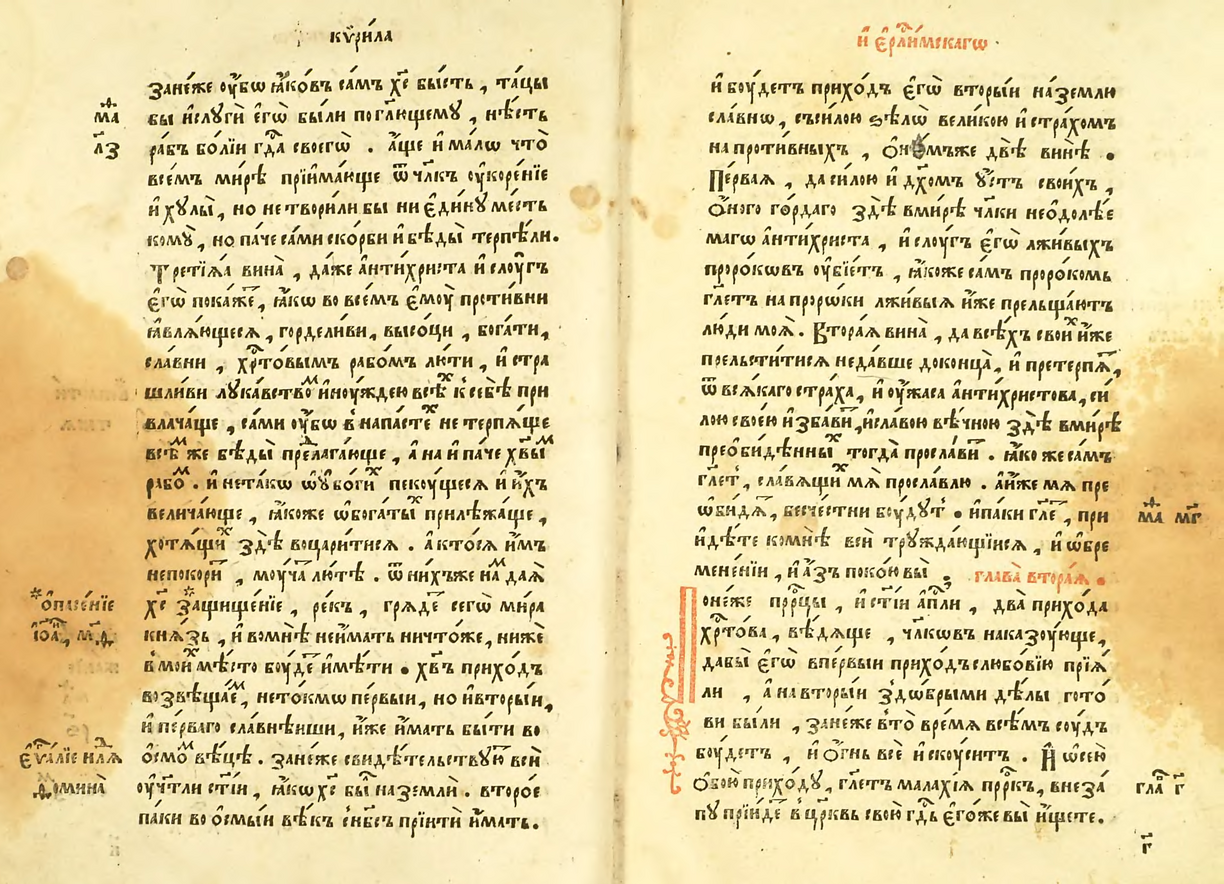 кѵ́рила
занéже оу҆́бѡ ꙗ҆́ковъ са́мъ хс҃ бы́сть , та́цы
бы и҆слу́ги є҆гѡ̀ бы́ли по гл҃ющемꙋ̀ , нѣ́сть
ра́бъ бо́лїи гдⷭ҇а своегѡ̀ . а҆́ще и҆ ма́лѡ что̀
всѣ́мъ ми́рѣ прїима́юще ѿ чл҃къ оу҆коре́нїе
и҆ хꙋлы̀ , но не твори́ли бы ни є҆ди́нꙋ ме́сть
комꙋ̀ , но па́че са́ми ско́рби и҆ бѣ́ды терпѣ́ли.
Тре́тїѧѧ вина̀ , да́же а҆нтихри́ста и҆ слоу́гъ
є҆гѡ̀ пока́же , ꙗ҆́кѡ во все́мъ є҆моу̀ проти́вни
ꙗ҆влѧ́ющесѧ , гордели́ви , высо́ци , бога́ти ,
сла́вни , хрⷭ҇то́вымъ рабо́мъ лю́ти , и҆ стра
шли́ви лꙋка́вствоⷨ и҆ноу́ждею всѣⷯ к себѣ̀ при
влача́ще , са́ми оу҆́бѡ в напа́стеⷯ не терпѧ́ще
всѣⷨ же бѣ́ды прелага́юще , а на и҆ па́че хв҃ыⷨ
рабоⷨ . и҆ нета́кѡ ѡ҆ оу҆бо́гиⷯ пекоу́щесѧ и҆ и҆́хъ
велича́юще , ꙗ҆́коже ѡ҆бога́тыⷯ прилѣжа́ще ,
хотѧ́щиⷯ здѣ̀ воцари́тисѧ . а кто́сѧ и҆̀мъ
непокори́т , моу́ча лю́тѣ . ѿ ни́хъже наⷨ даѧ̀
хс҃ защище́нїе , ре́къ , грѧде́т сегѡ̀ ми́ра
кнѧ́зь , и҆ вомнѣ̀ неи҆́мать ничто́же , ни́же
в мои́х мѣ́сто боу́де и҆мѣ́ти . хв҃ъ прихо́дъ
возвѣща́еⷨ , нето́кмѡ пе́рвыи , но и҆вторы́и ,
и҆ пе́рваго славнѣ́иши , и҆́же и҆́мать бы́ти во
ѻ҆смоⷨ вѣ́цѣ . зане́же свидѣ́тельствꙋю всѝ
оу҆чт҃ли ст҃їи , ꙗ҆́кѡ хс҃ бы̀ на землѝ . второ́е
па́ки во ѻ҆смы́и вѣ́къ с нб҃сѐ прїити и҆́мать.
ма
л҃з
*ѻ҆писе́нїе
і҆оа , м҃д
є҆ѵⷢ҇лїе нл҃ѧ
домина̀
и҆ є҆рⷭ҇ли́мскагѡ
и҆ боу́детъ прихо́дъ є҆гѡ̀ вторы́и на зе́млю
сла́внѡ , съси́лою ѕѣ́лѡ вели́кою и҆ стра́хомъ
на проти́вныхъ , двѣ̀ винѣ̀ .
Пе́рваѧ , да си́лою и҆ дх҃омъ оу҆́стъ свои́хъ ,
ѻ҆́ного го́рдаго здѣ̀ вми́рѣ чл҃ки неѻ҆долѣ́е
маго а҆нтихри́ста , и҆ слоу́гъ є҆гѡ̀ лжи́выхъ
проро́кѡвъ оу҆бїе́тъ , ꙗ҆́коже са́мъ проро́комъ
гл҃етъ на проро́ки лжи́выѧ и҆́же прельща́ютъ
лю́ди моѧ̀ . Втора́ѧ вина̀ , да всѣ́хъ свои́ⷯ и҆́же
прельсти́тисѧ неда́вше доконца̀ , и҆ претерпѧ̀ ,
ѿ всѧ́каго стра́ха , и҆ оу҆́жаса а҆нтихри́стова , си
лою свое́ю и҆зба́ви , и҆сла́вою вѣ́чною здѣ̀ вми́рѣ
преѻ҆би́дѣнныⷯ тогда̀ просла́ви . ꙗ҆́ко же са́мъ
гл҃етъ , сла́вѧщиⷯ мѧ̀ просла́влю . а҆и҆́же мѧ пре
ѡ҆би́дѧ , бесче́стни боу́дꙋт . и҆па́ки гл҃е , при
и҆дѣ́те комнѣ̀ всѝ трꙋжда́ющїисѧ , и҆ ѡ҆бре
мене́нїи , и҆ а҆́зъ поко́ю вы̀ . глава̀ втора́ѧ .
Поне́же прⷪ҇ро́цы , и҆ ст҃їи а҆пⷭ҇ли , два̀ прихо́да
хрⷭ҇то́ва , вѣ́дѧще , чл҃кѡвъ наказоу́юще ,
дабы̀ є҆гѡ̀ впе́рвыи прихо́дъ слюбо́вїю прїѧ́
ли , а на вторы́и здо́брыми дѣ́лы гото́
ви бы́ли , зане́же вто̀ вре́мѧ всѣ́мъ соу́дъ
боу́детъ , и҆ ѻ҆́гнь всѐ и҆скоу́ситъ . И҆ ѡ҆сею̀
ѻ҆бою̀ прихо́дꙋ , гл҃етъ мала́хїѧ прⷪ҇ро́къ , внеза́
пꙋ прїи́де в цр҃квь свою̀ гдⷭ҇ь є҆го́же вы̀ и҆́щете .
ма м҃г
глаⷡ҇ г҃
г҃